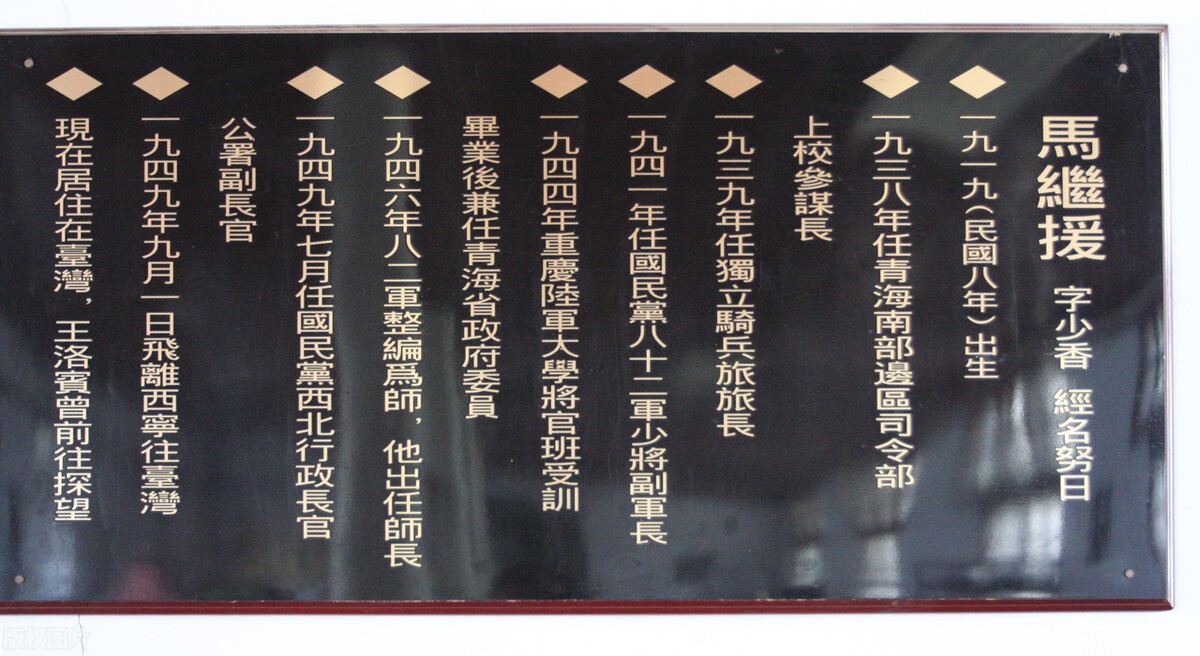 馬繼援 字少香 經名努日
一九一九(民國八年)出生
一九三八年任青海南部邊區司令部
上校參謀長
一九三九年任獨立騎兵旅旅長
一九四一年任國民黨八十二軍少將副軍長
一九四四年重慶陸軍大學將官班受訓
畢業後兼任青海省政府委員
一九四六年八二軍整編爲師，他出任師長
一九四九年七月任國民黨西北行政長官
公署副長官
一九四九年九月一日飛離西寧往臺灣
現在居住在臺灣，王洛賓曾前往探望
版权图片